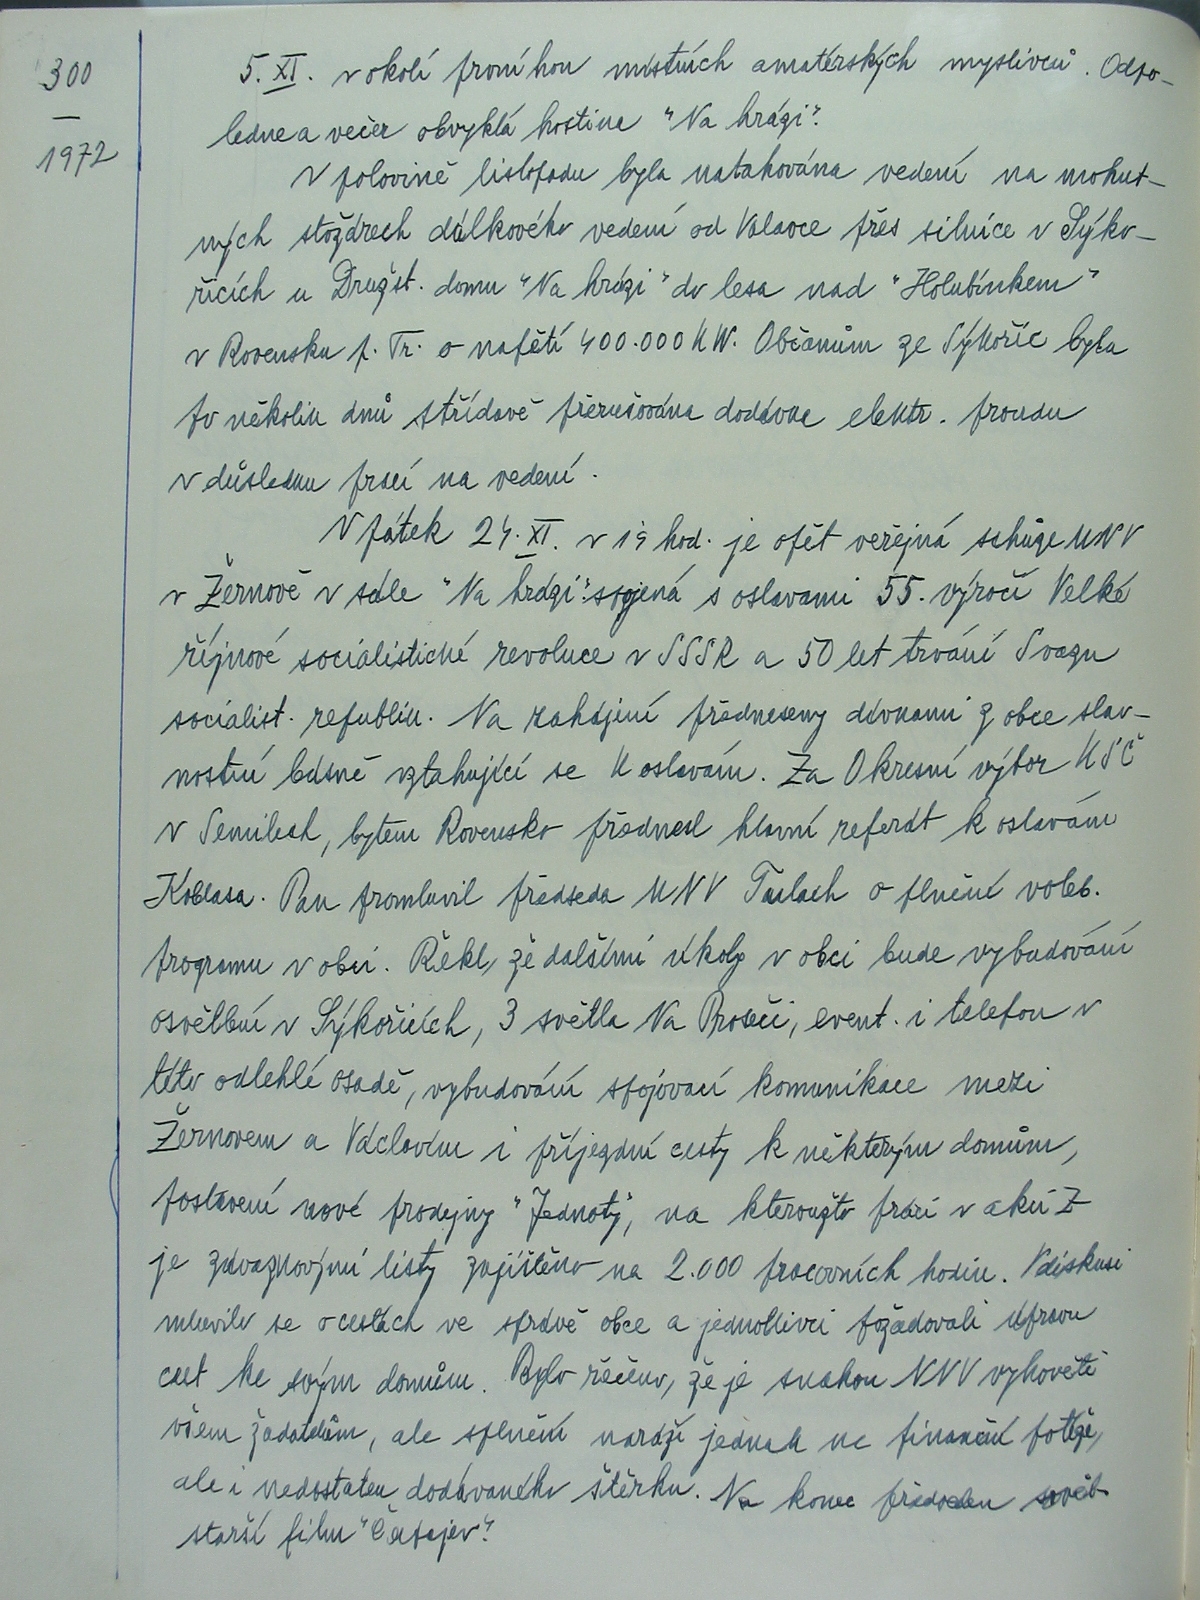 300
—
1972
5. XI. v okolí první hon místních amatérských myslivců. Odpo-
ledne a večer obvyklá hostina "Na hrázi".
V polovině listopadu byla natahována vedení na mohut-
ných stožárech dálkového vedení od Valovce přes silnice v Sýko-
řicích u Družst. domu "Na hrázi" do lesa nad "Holubínkem"
v Rovensku p. Tr. o napětí 400.000 KW. Občanům ze Sýkořic byla
po několik dnů střídavě přerušována dodávka elektr. proudu
v důsledku prací na vedení.
V pátek 24. XI. v 19 hod. je opět veřejná schůze MNV
v Žernově v sále "Na hrázi" spojená s oslavami 55. výročí Velké
říjnové socialistické revoluce v SSSR a 50 let trvání Svazu
socialist. republik. Na zahájení předneseny dívkami z obce slav-
nostní básně vztahující se k oslavám. Za Okresní výbor KSČ
v Semilech, bytem Rovensko přednesl hlavní referát k oslavám
Koblasa. Pan promluvil předseda MNV Tulach o plnění voleb.
programu v obci. Řekl, že dalšími úkoly v obci bude vybudování
osvětlení v Sýkořicích, 3 světla Na Proseči, event. i telefon v
této odlehlé osadě, vybudování spojovací komunikace mezi
Žernovem a Václavím i příjezdní cesty k některým domům,
postavení nové prodejny "Jednoty", na kteroužto práci v akci Z
je závazkovými listy zajištěno na 2.000 pracovních hodin. V diskusi
mluvilo se o cestách ve správě obce a jednotlivci požadovali úpravu
cest ke svým domům. Bylo řečeno, že je snahou NNV vyhověti
všem žadatelům, ale splnění naráží jednak na finanční potíže,
ale i nedostatek dodávaného štěrku. Na konec předveden sovět.
starší film "Čapajev".